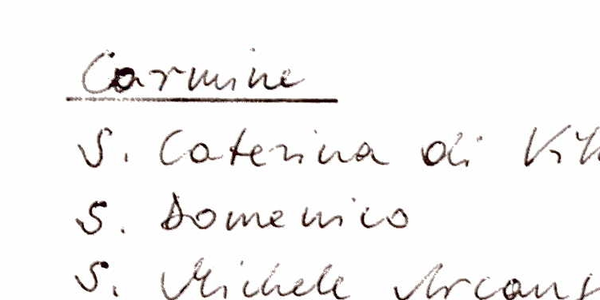 Carmine
S. Caterina di
S. Domenico
S. Michele